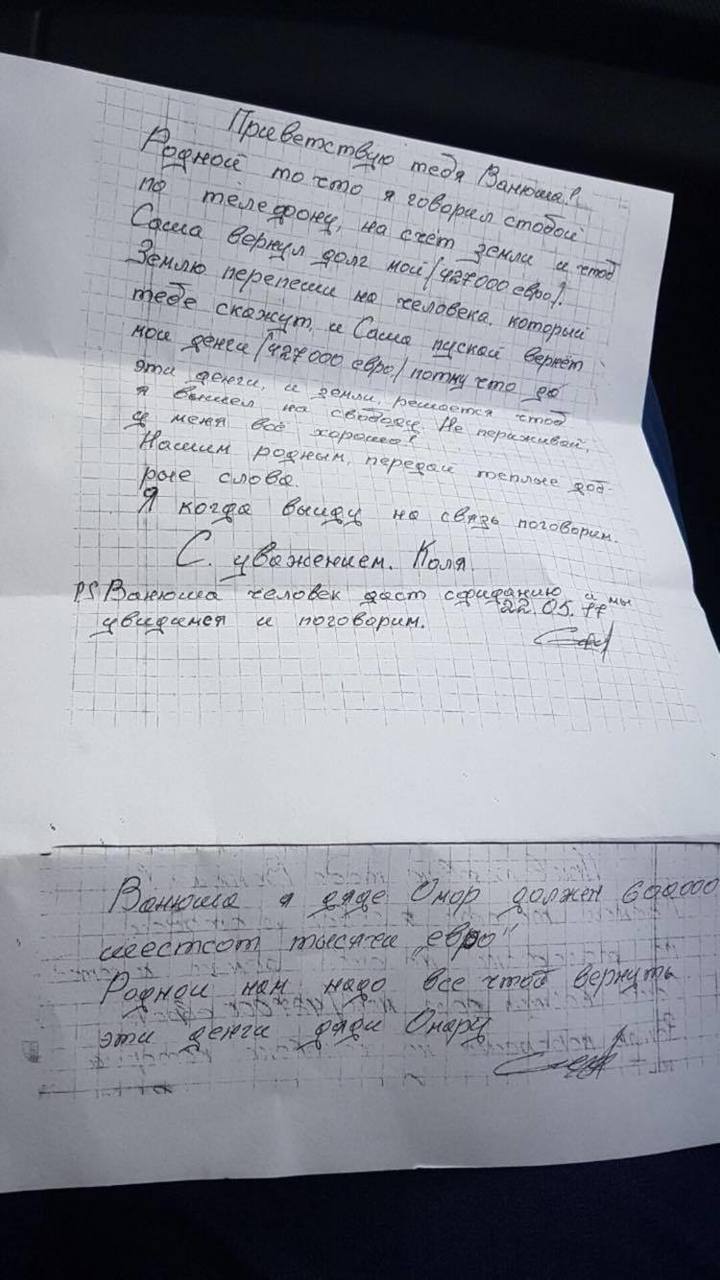 Приветствую тебя Ванюша!
Родной то что я говорил стобой
по телефону, на счёт земли и чтоб
Саша вернул долг мой /427000 евро/.
Землю перепеши на человека. который
тебе скажут, и Саша пускай вернёт
мои денги /427000 евро/ потму что
эти денги, и земли, решается чтоб
я вышел на свободу. Не периживай,
у меня всё хорошо!
Нашим родным, передай теплые доб-
рые слова.
Я когда выйду на связь поговорим.
С. уважением. Коля.
PS Ванюша человек даст сфиданию и мы
22.05.17
увидимся и поговорим.
Ванюша я дяде Омар должен 600000
шестсот тысячи „евро"
Родной нам надо все чтоб вернуть
эти денги дяди Омару